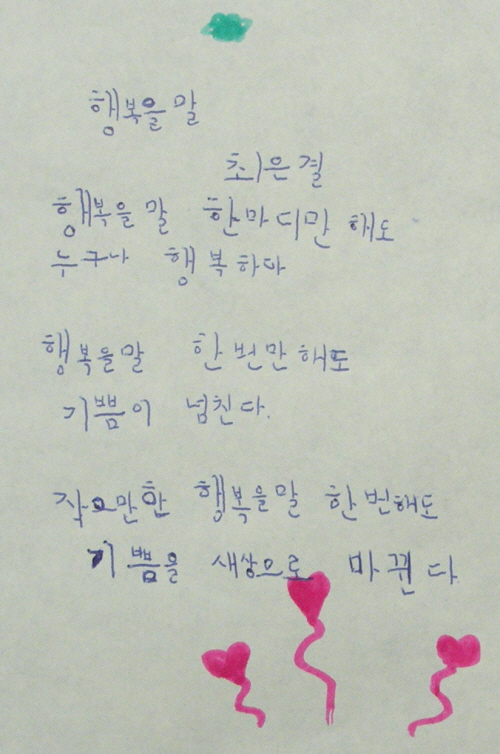 행복을 말
최은결
행복을 말 한마디만 해도
누구나 행복하다
행복을 말 한 번만 해도
기쁨이 넘친다.
작으만한 행복을말 한번해도
기쁨을 새상으로 바뀐다